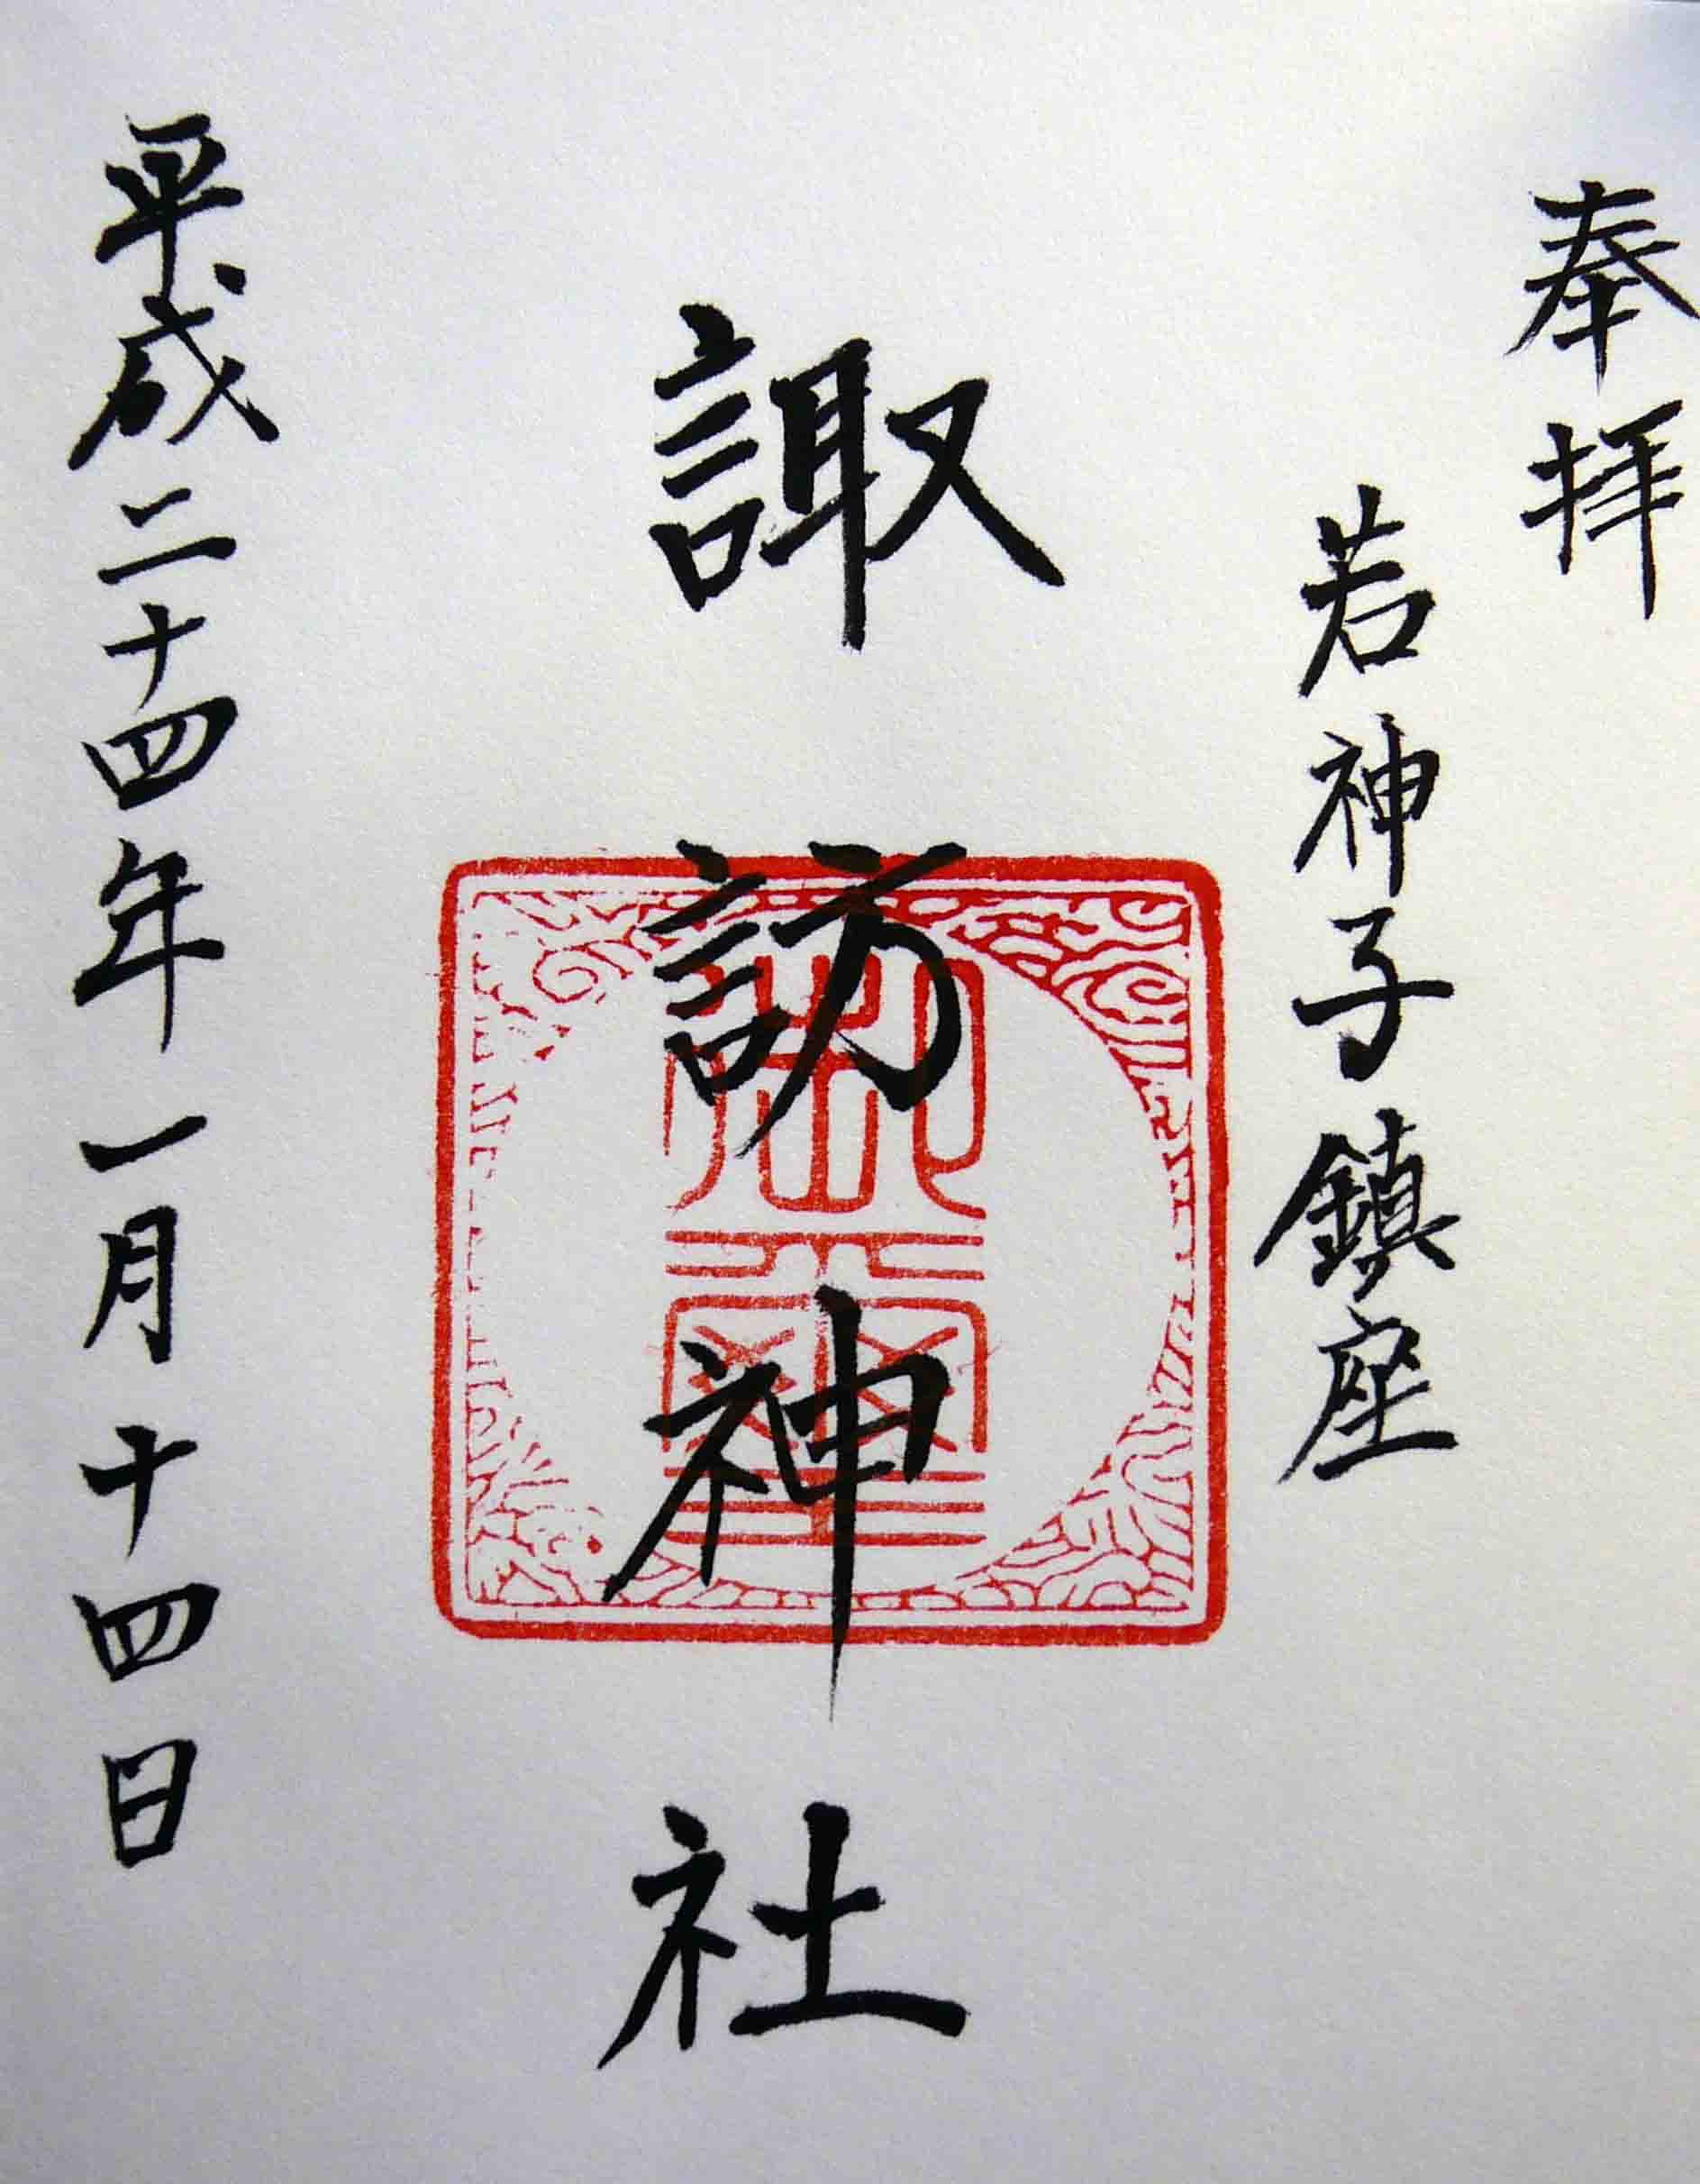 奉拝
若神子鎮座
諏訪神社
平成二十四年一月十四日